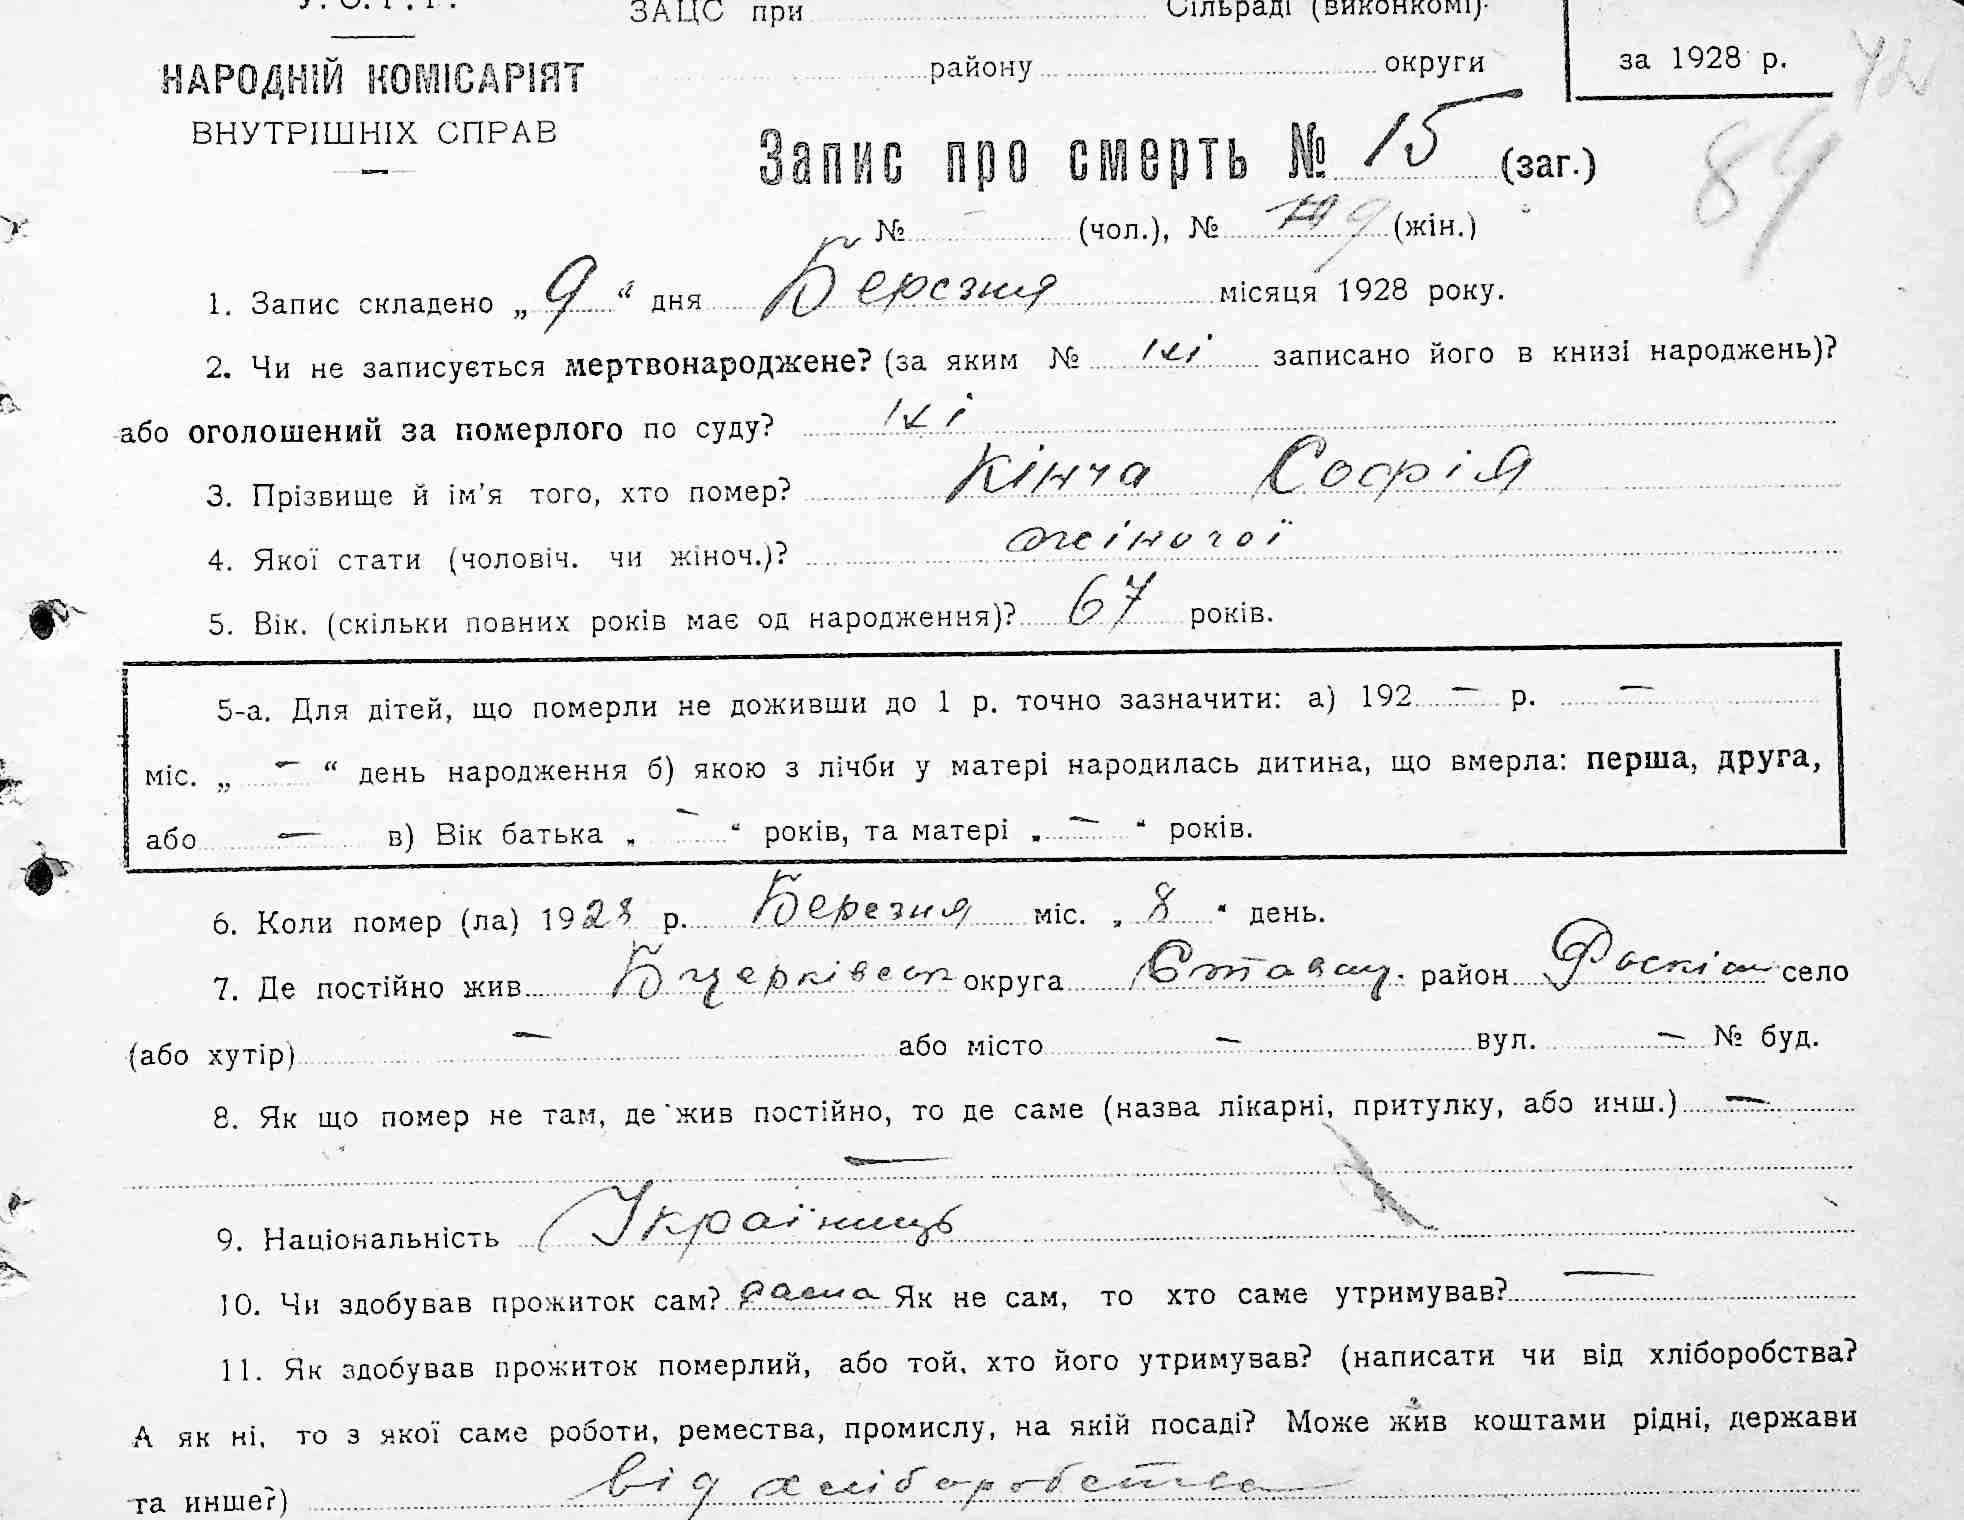 У. С. Р. Р.
ЗАЦС при Сільраді (виконкомі)
НАРОДНІЙ КОМІСАРІЯТ
ВНУТРІШНІХ СПРАВ
району округи
за 1928 р.
Запис про смерть № 15 (заг.)
89
№ - (чол.), № 9 (жін.)
1. Запис складено „ 9 “ дня Березня місяця 1928 року.
2. Чи не записується мертвонароджене? (за яким № ні записано його в книзі народжень)?
або оголошений за померлого по суду? ні
3. Прізвище й ім'я того, хто помер? Кінча Софія
4. Якої стати (чоловіч. чи жіноч.)? жіночої
5. Вік. (скільки повних років має од народження)? 67 років.
5-а. Для дітей, що померли не доживши до 1 р. точно зазначити: а) 192 — р. —
міс. „ — “ день народження б) якою з лічби у матері народилась дитина, що вмерла: перша, друга,
або — в) Вік батька „ — “ років, та матері „ — “ років.
6. Коли помер (ла) 1928 р. Березня міс. „ 8 “ день.
7. Де постійно жив Бцерківськ округа Ставищ. район село
(або хутір) — або місто — вул. — № буд.
8. Як що помер не там, де жив постійно, то де саме (назва лікарні, притулку, або инш.) —
—
9. Національність Українць
10. Чи здобував прожиток сам? сама Як не сам, то хто саме утримував? —
11. Як здобував прожиток померлий, або той, хто його утримував? (написати чи від хліборобства?
А як ні, то з якої саме роботи, ремества, промислу, на якій посаді? Може жив коштами рідні, держави
та инше?) від хліборобства